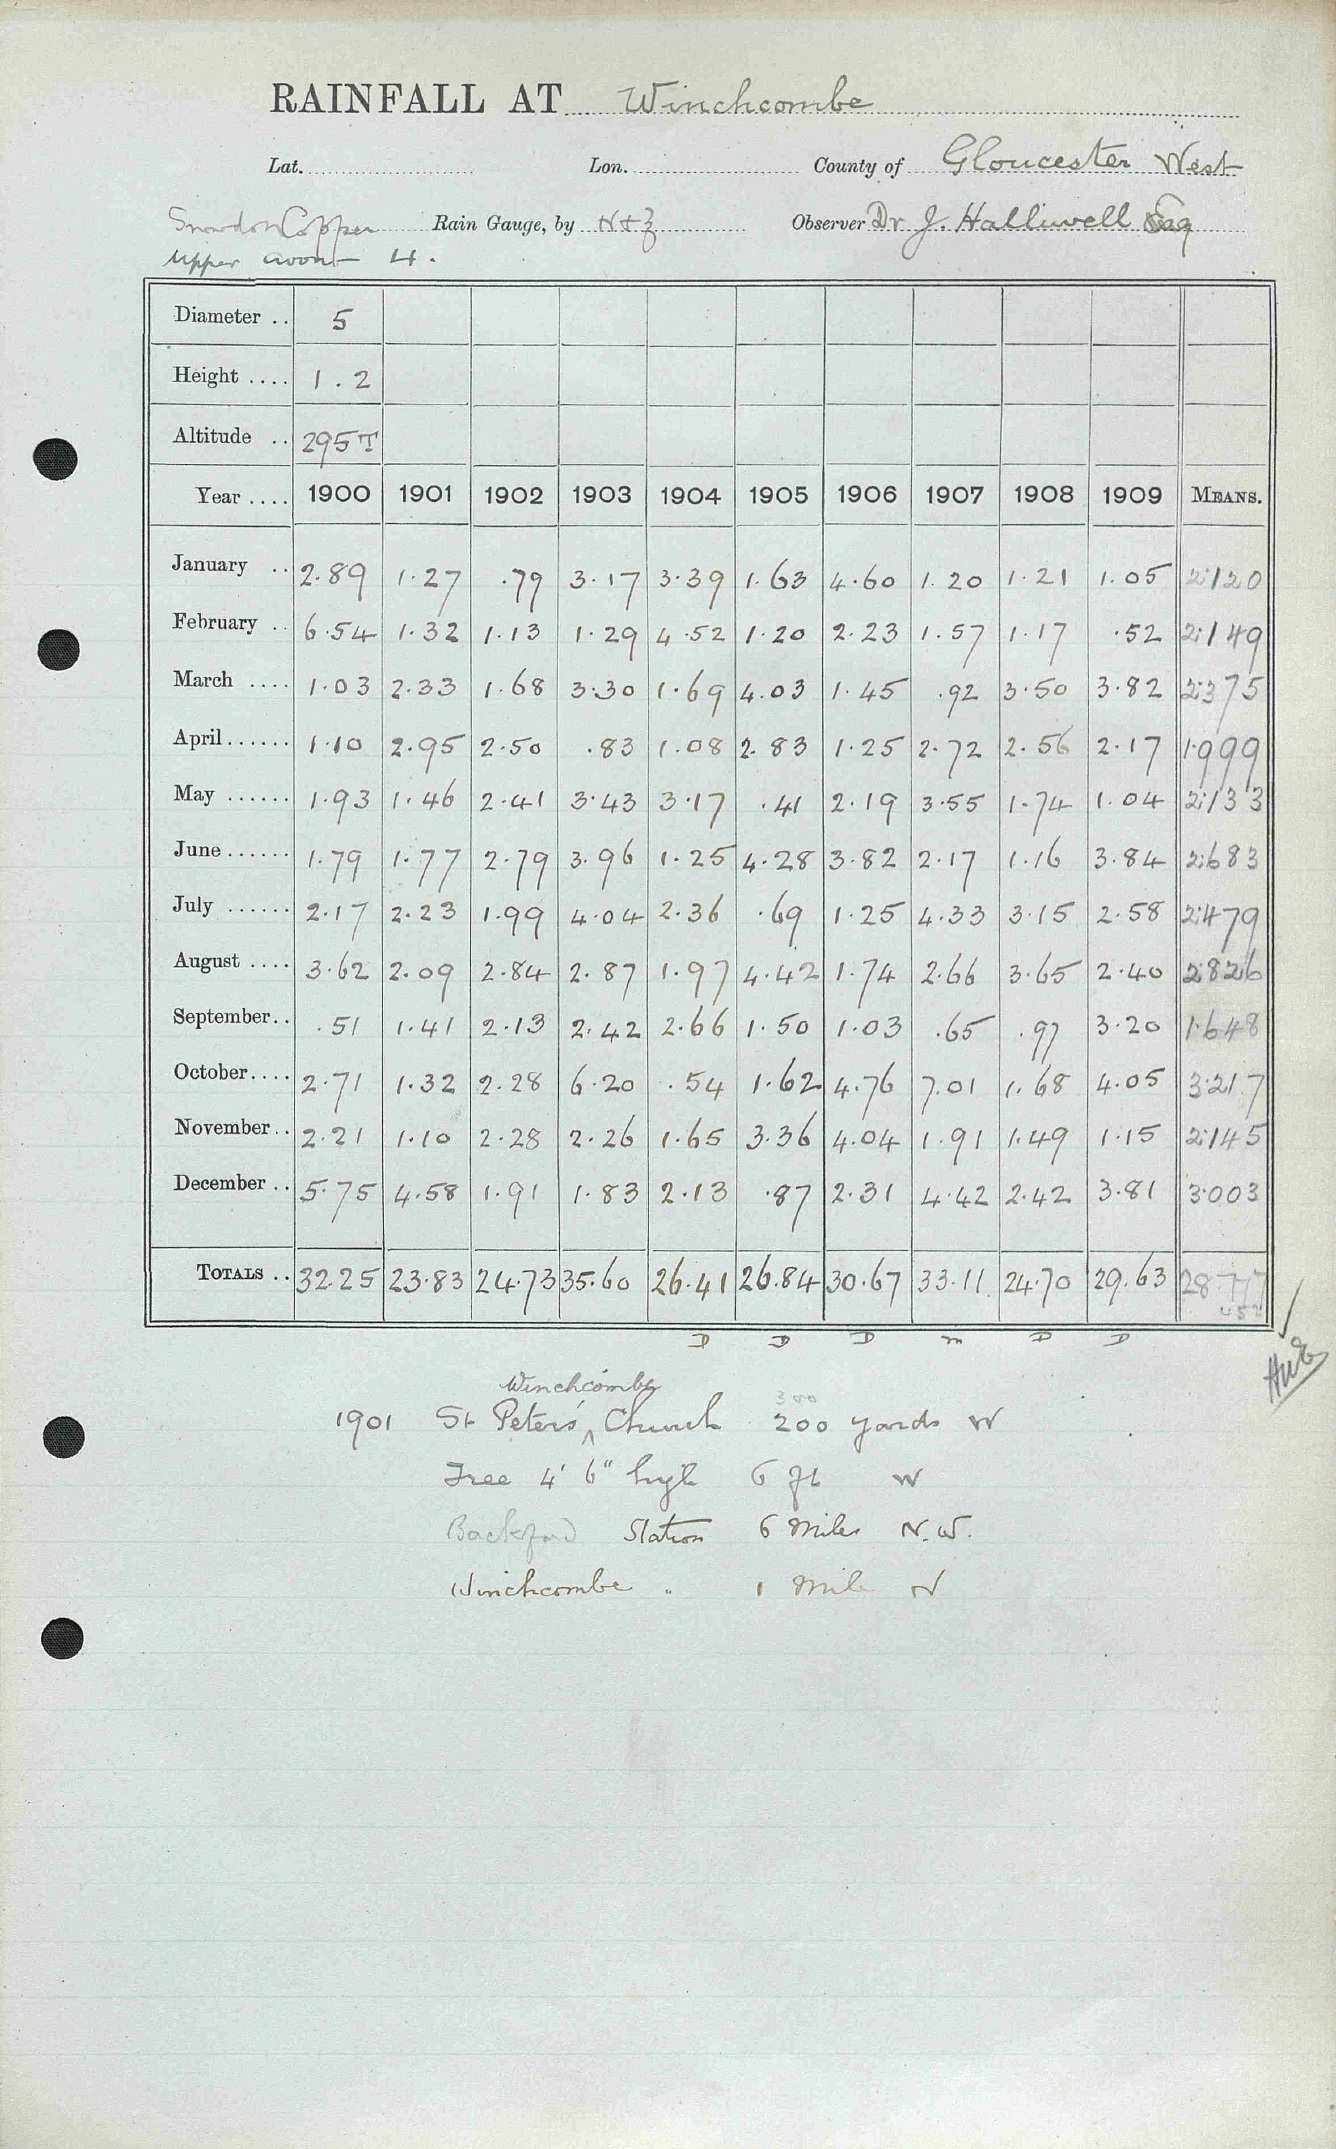 RAINFALL AT Winchcombe
Lat. Lon. County of Gloucester West
Snowdon Copper Rain Gauge, by N & Z Observer Dr J. Halliwell Esq
Upper Avon 4.
Diameter .. 5
Height .... 1.2
Altitude .. 295 T
Year .... 1900 1901 1902 1903 1904 1905 1906 1907 1908 1909 MEANS.
January .. 2.89 1.27 .79 3.17 3.39 1.63 4.60 1.20 1.21 1.05 2.120
February .. 6.54 1.32 1.13 1.29 4.52 1.20 2.23 1.57 1.17 .52 2.149
March .... 1.03 2.33 1.68 3.30 1.69 4.03 1.45 .92 3.50 3.82 2.375
April ...... 1.10 2.95 2.50 .83 1.08 2.83 1.25 2.72 2.56 2.17 1.999
May ...... 1.93 1.46 2.41 3.43 3.17 .41 2.19 3.55 1.74 1.04 2.133
June ...... 1.79 1.77 2.79 3.96 1.25 4.28 3.82 2.17 1.16 3.84 2.683
July ...... 2.17 2.23 1.99 4.04 2.36 .69 1.25 4.33 3.15 2.58 2.479
August .... 3.62 2.09 2.84 2.87 1.97 4.42 1.74 2.66 3.65 2.40 2.826
September .. .51 1.41 2.13 2.42 2.66 1.50 1.03 .65 .97 3.20 1.648
October .... 2.71 1.32 2.28 6.20 .54 1.62 4.76 7.01 1.68 4.05 3.217
November .. 2.21 1.10 2.28 2.26 1.65 3.36 4.04 1.91 1.49 1.15 2.145
December .. 5.75 4.58 1.91 1.83 2.13 .87 2.31 4.42 2.42 3.81 3.003
TOTALS .. 32.25 23.83 24.73 35.60 26.41 26.84 30.67 33.11 24.70 29.63 28.777
D D D m D D
Winchcombe
300
1901 St Peter's ^ Church 200 yards W
Tree 4' 6" high 6 ft W
Station 6 Miles N.W.
Winchcombe " 1 Mile N